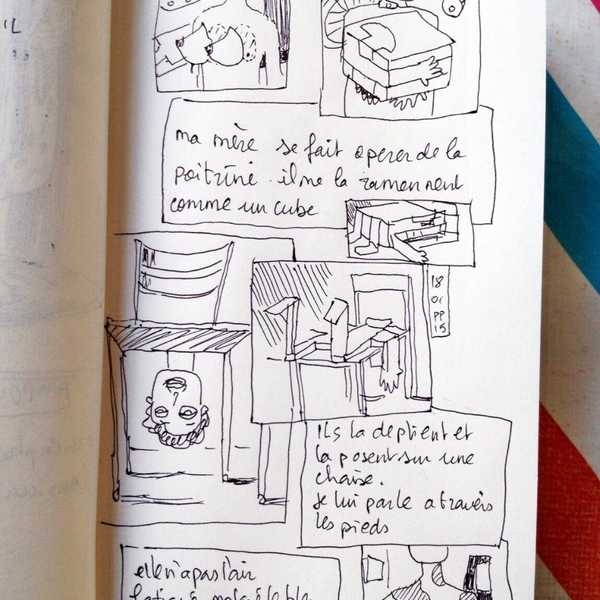 IL
ma mère se fait operer de la
poitrine. il me la ramennent
comme un cube
18
01
PP
15
ils la deplient et
la posent sur une
chaise.
je lui parle a travers
les pieds
elle n'a pas l'air